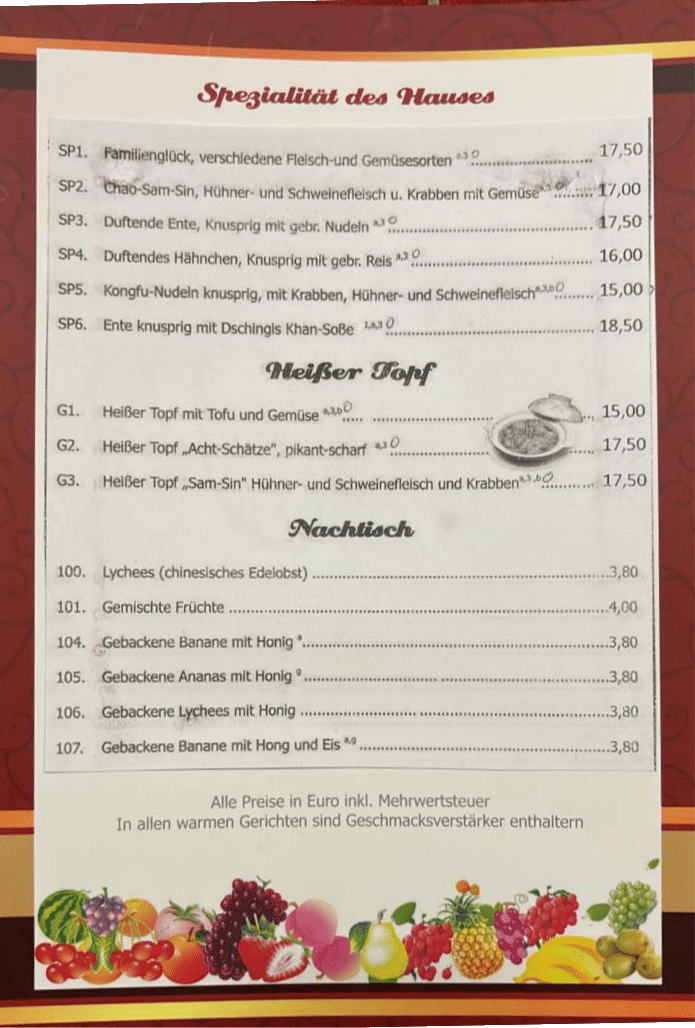 Spezialität des Hauses
SP1. Familienglück, verschiedene Fleisch-und Gemüsesorten a,3 O ........................... 17,50
SP2. Chao-Sam-Sin, Hühner- und Schweinefleisch u. Krabben mit Gemüse ......... 17,00
SP3. Duftende Ente, Knusprig mit gebr. Nudeln a,3 O ............................................. 17,50
SP4. Duftendes Hähnchen, Knusprig mit gebr. Reis a,3 O ........................................ 16,00
SP5. Kongfu-Nudeln knusprig, mit Krabben, Hühner- und Schweinefleisch a,3,b O ......... 15,00
SP6. Ente knusprig mit Dschingis Khan-Soße 1,a,3 O .............................................. 18,50
Heißer Topf
G1. Heißer Topf mit Tofu und Gemüse a,3,b O ..... ............................... 15,00
G2. Heißer Topf „Acht-Schätze", pikant-scharf a,3 O ........................ 17,50
G3. Heißer Topf „Sam-Sin" Hühner- und Schweinefleisch und Krabben a,3,b O ........... 17,50
Nachtisch
100. Lychees (chinesisches Edelobst) ................................................................3,80
101. Gemischte Früchte ....................................................................................4,00
104. Gebackene Banane mit Honig a ..................................................................3,80
105. Gebackene Ananas mit Honig g ..................................................................3,80
106. Gebackene Lychees mit Honig ...................................................................3,80
107. Gebackene Banane mit Hong und Eis a,g .......................................................3,80
Alle Preise in Euro inkl. Mehrwertsteuer
In allen warmen Gerichten sind Geschmacksverstärker enthaltern